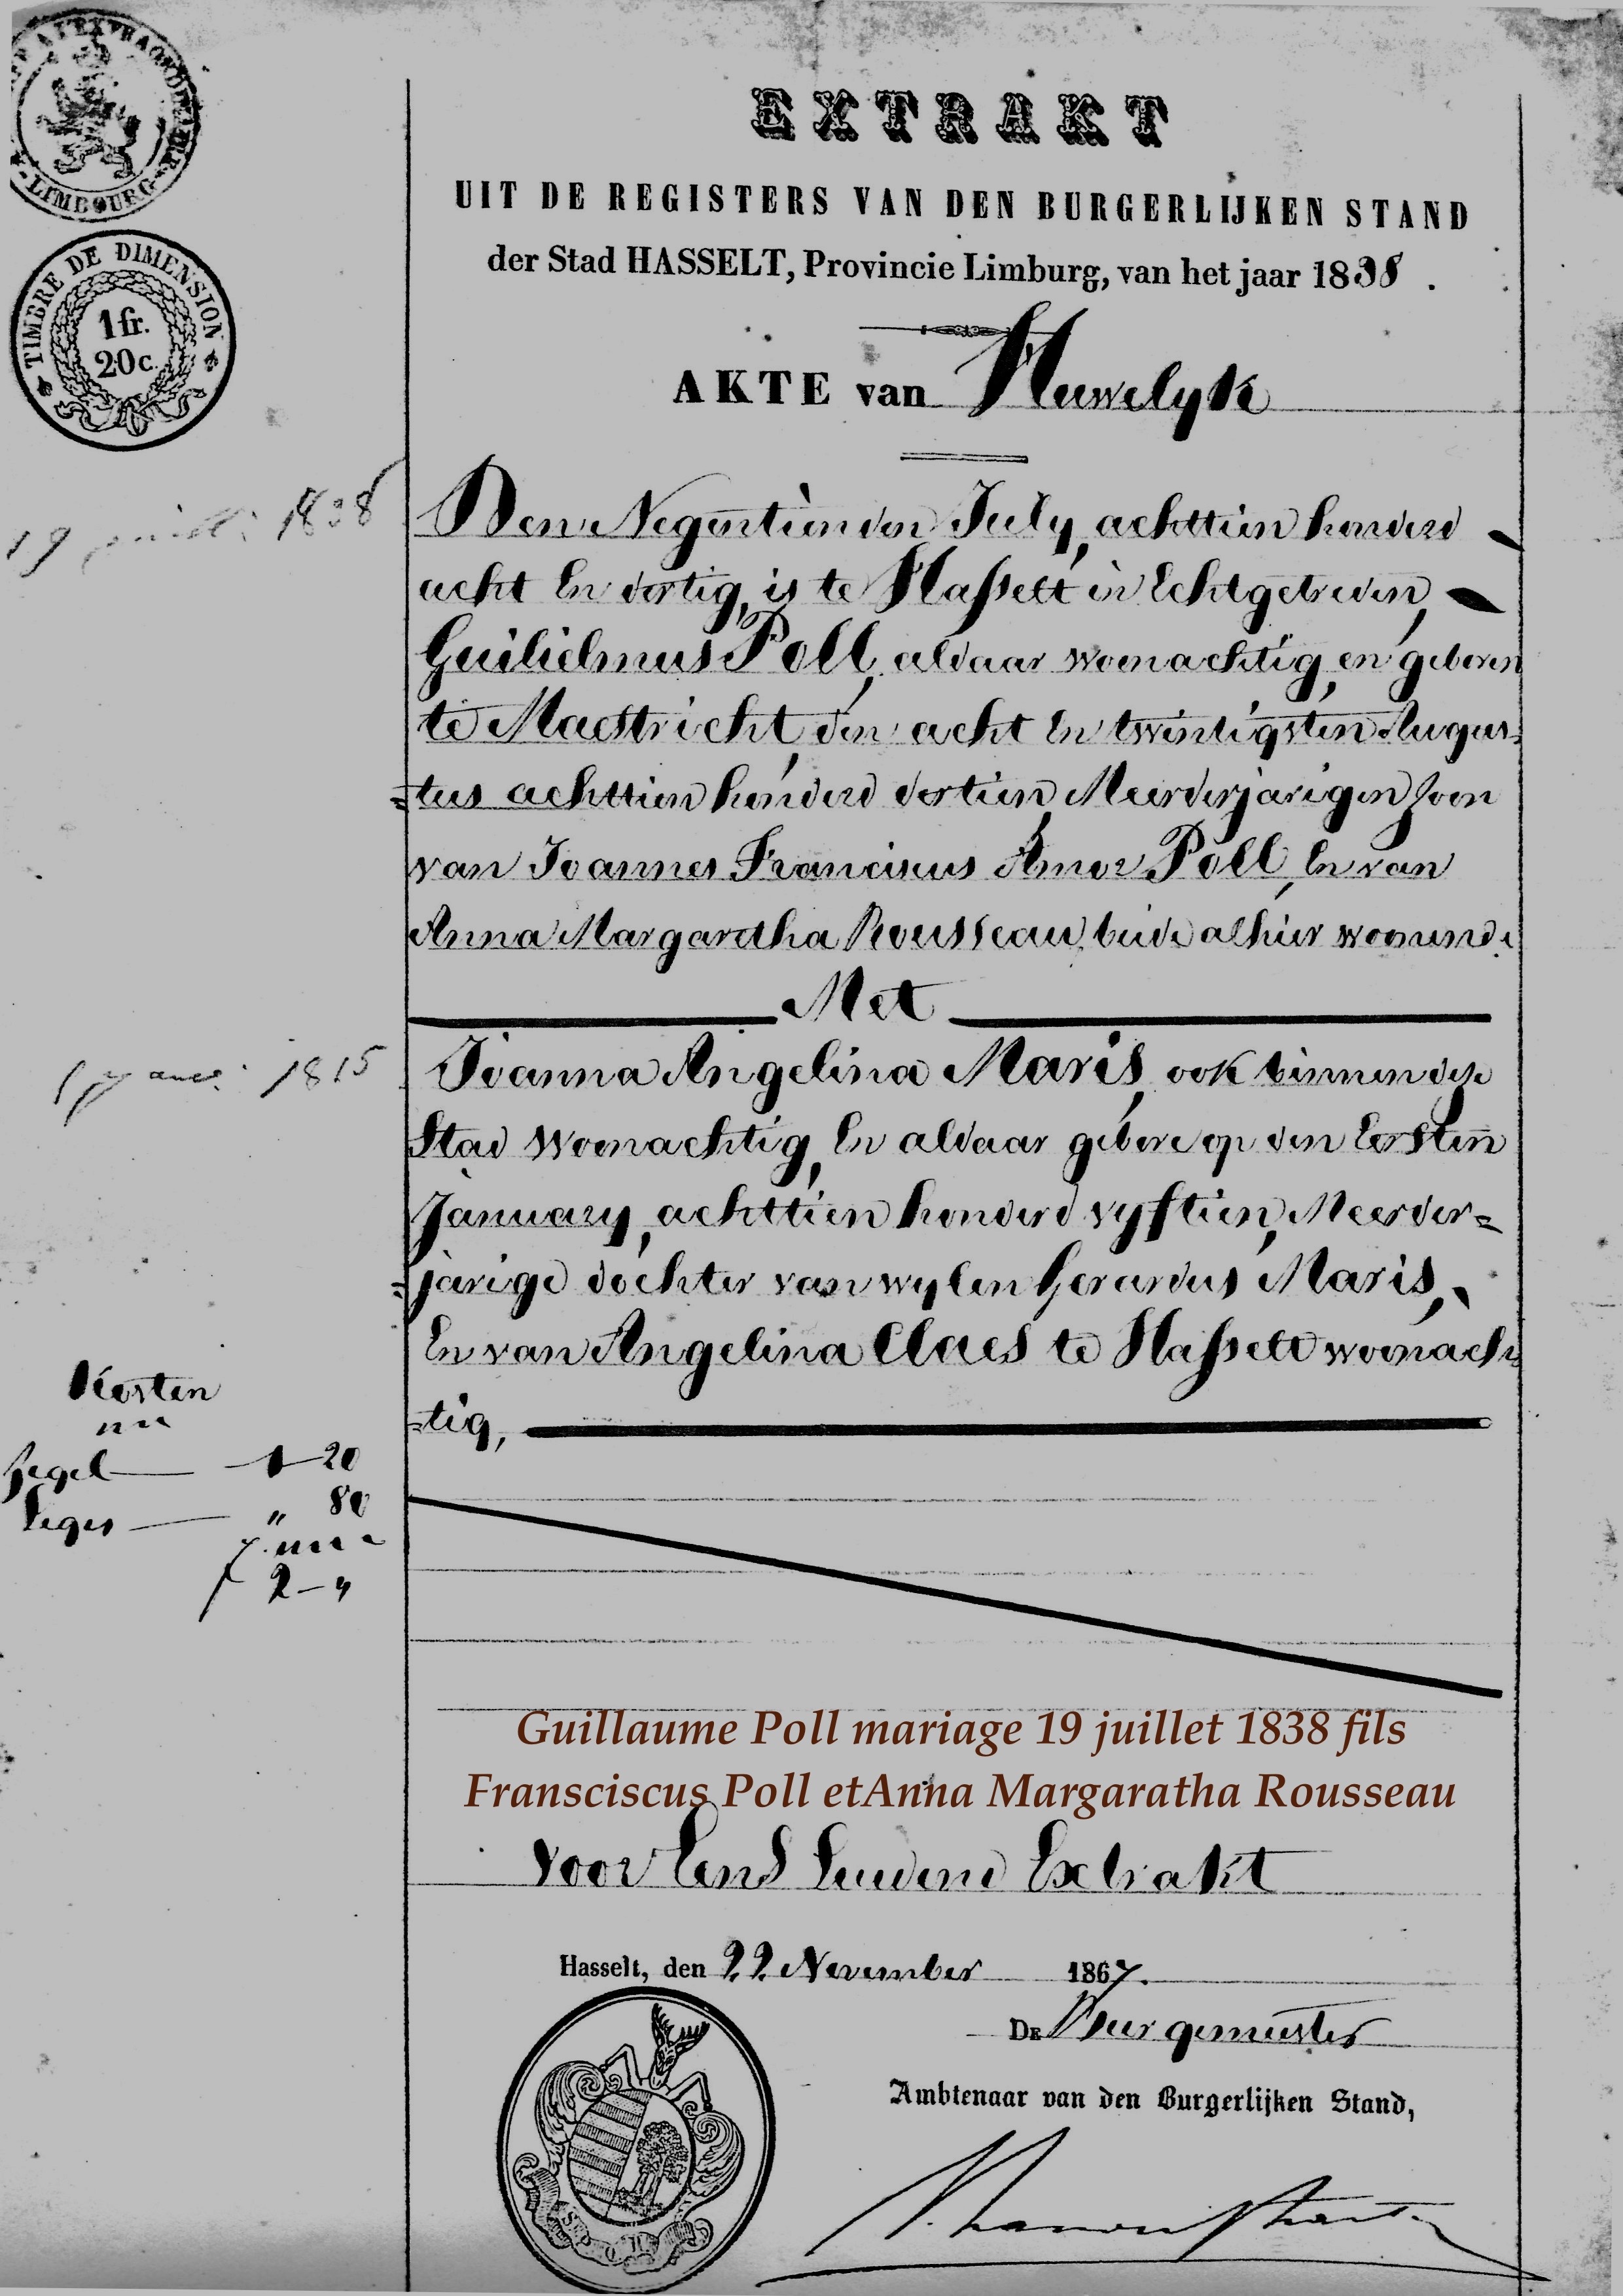 LIMBOURG
TIMBRE DE DIMENSION
1 fr.
20 c.
EXTRAKT
UIT DE REGISTERS VAN DEN BURGERLIJKEN STAND
der Stad HASSELT, Provincie Limburg, van het jaar 1838.
AKTE van Huwelyk
19 juill: 1838
Den Negentienden July, achttien honderd
acht En dertig, is te Hasselt in Echtgetreden,
Guilielmus Poll, aldaar woonachtig, en geboren
te Maestricht, den acht En twintigsten Augus-
=tus achttien honderd dertien, Meerderjarigen Zoon
van Joannes Franciscus Amor Poll, En van
Anna Margaretha Rousseau, beide alhier woonende.
Met
1 janv: 1815
Joanna Angelina Maris, ook binnen deze
Stad Woonachtig, En aldaar gebore op den Eersten
January, achttien honderd vyftien, Meerder=
=jarige dochter van wylen Gerardus Maris,
En van Angelina Claes te Hasselt woonach=
=tig,
Kosten
Zegel — 1—20
Leges — " 80
f 2—"
Guillaume Poll mariage 19 juillet 1838 fils
Fransciscus Poll etAnna Margaratha Rousseau
Voor Eens Luidend Extrakt
Hasselt, den 22 November 1867.
DE Burgemeester
Ambtenaar van den Burgerlijken Stand,